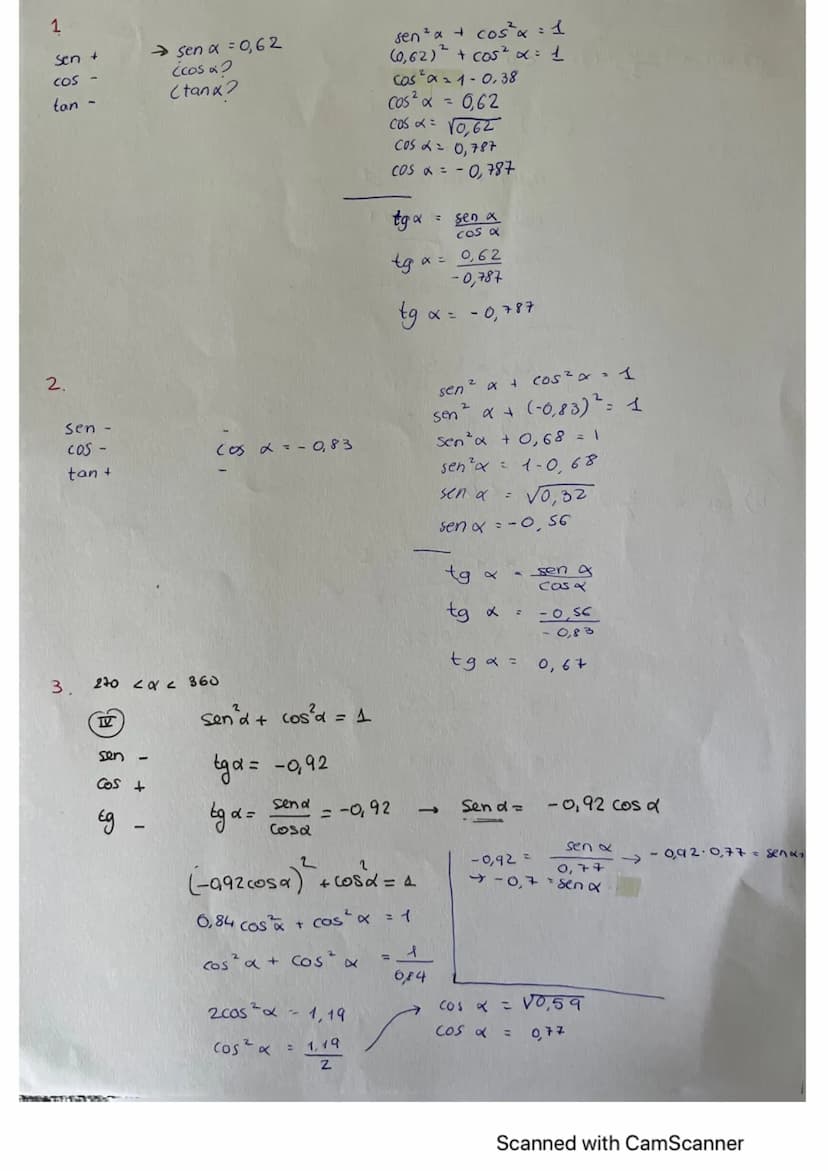 1
sen +
cos -
tan -
→ sen α = 0,62
¿cos α?
¿tan α?
sen²α + cos²α = 1
(0,62)² + cos² α = 1
cos²α = 1 - 0.38
cos² α = 0,62
cos α = √0,62
cos α = 0,787
cos α = - 0,787
tg α = sen α / cos α
tg α = 0,62 / -0,787
tg α = - 0,787
2.
sen -
cos -
tan +
cos α = - 0,83
sen² α + cos² α = 1
sen² α + (-0,83)² = 1
sen²α + 0,68 = 1
sen²α = 1-0,68
sen α = √0,32
sen α = -0,56
tg α = sen α / cos α
tg α = -0,56 / -0,83
tg α = 0,67
3. 270 < α < 360
IV
sen -
cos +
tg -
sen²α + cos²α = 1
tg α = -0,92
tg α = sen α / cos α = -0,92 → sen α = -0,92 cos α
(-0,92 cos α)² + cos²α = 1
0,84 cos²α + cos² α = 1
cos² α + cos² α = 1 / 0,84
2cos²α = 1,19
cos² α = 1,19 / 2
-0,92 = sen α / 0,77 → - 0,92 · 0,77 = sen α
→ -0,7 = sen α
cos α = √0,59
cos α = 0,77
Scanned with CamScanner